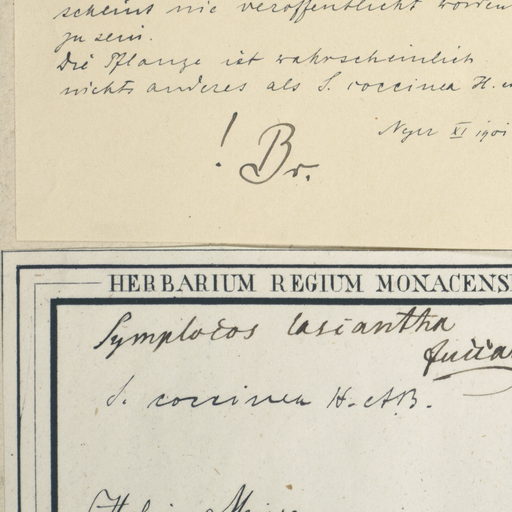 scheint nie veröffentlicht worden
zu sein.
Die Pflanze ist wahrscheinlich
nichts anderes als S. coccinea H. e
Nyer XI 1901
! Br.
HERBARIUM REGIUM MONACENS
Symplocos lasiantha
Zucca
S. coccinea H. & B.